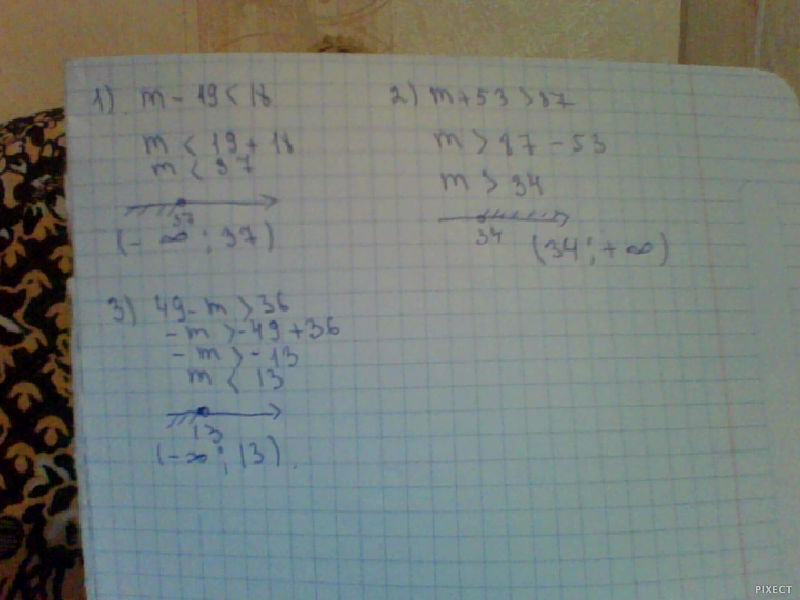 1) m - 19 < 18
m < 19 + 18
m < 37
37
(- ∞ ; 37)
2) m + 53 > 87
m > 87 - 53
m > 34
34
(34 ; + ∞)
3) 49 - m > 36
- m > - 49 + 36
- m > - 13
m < 13
13
(- ∞ ; 13).
PIXECT